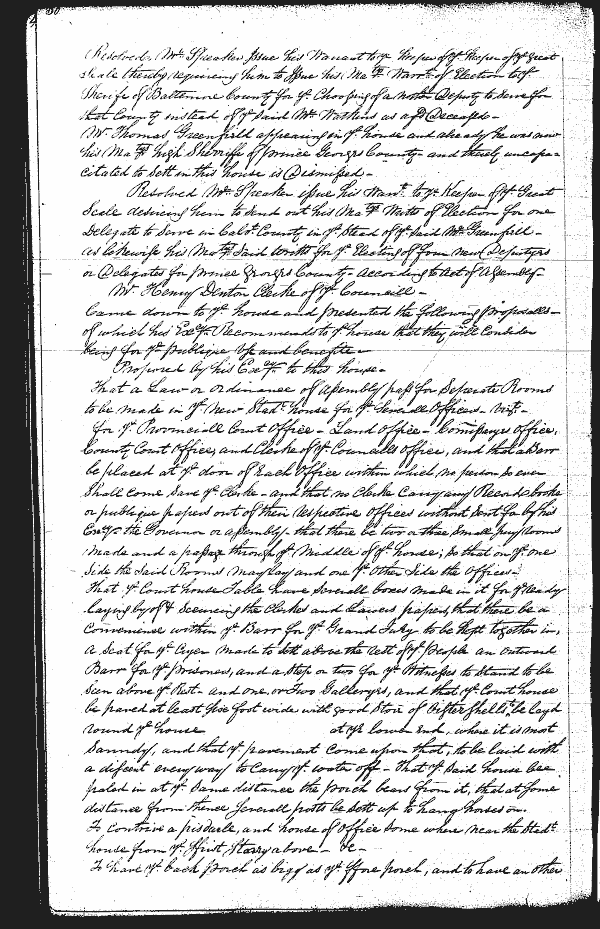 Resolved, Mr Speaker Issue his Warrant to ye Keeper of ye Keeper of ye Great
Seale thereby requireing him to Issue his Matys Warrt of Election to ye
Sherife of Baltemore County for ye Choosing of a Deputy to Serve for
that County instead of ye Said Mr Watkins as afd Deceased -
Mr Thomas Greenfield appearing in ye house and already he was now
his Matys high Sherriffe of Prince Georges County - and thereby uncapa=
citated to sett in this house is Dismissed -
Resolved Mr Speaker issue his Warrt to ye Keeper of ye Great
Seale desireing him to send out his Matys Writts of Election for one
Delegate to Serve in Calvt County in ye Stead of ye Said Mr Greenfeild -
as likewise his Matys Said Writts for ye Electing of four new Deputyes
or Delegates for Prince Georges County - according to act of Assembly -
Mr Henry Denton Clerke of ye Councill -
Came down to ye house and presented the following proposalls -
of which his Excy Recommends to ye house that they will Consider
being for ye publique Use and benefitt -
Proposed by his Exeys to this house -
That a Law or ordinance of assembly pass for Seperate Rooms
to be made in ye New Stadt house for ye Severall Offices - vizt -
for ye Provinciall Court Office - Land Office - Comissarys Office,
County Court Office, and Clerke of ye Councills Office, and that a Barr
be placed at ye door of Each Office within which, no person so ever
Shall come Save ye Clerke - and that no Clerke Carry any Record, booke
or publique papers out of their respective offices without Sent for by his
Exey the Governor or assembly - that there be two or three Small rooms
made and a passage through ye Middle of ye house; So that on ye one
side the Said Rooms may lay and one ye other Side the Offices -
That ye Court house Table have Severall boxes made in it for ye ready
laying by of & Secureing the Clerkes and Lawers papers, that there be a
Convenience within ye Barr for ye Grand Jury to be Kept together in,
A Seat for ye Cryer made to sett above the rest of ye People an outward
Barr for ye prisoners, and a Step or two for ye Witnesses to Stand to be
Seen above ye Rest - and one, or two Galleryes, and that ye Court house
be paved at least five foot wide with good Store of Oister Shells be layd
round ye house at ye lower End, where it is most
Sanndy, and that ye pavement Come upon that, to be laid with
a discent every way to Carry ye water off - that ye Said house bee
paled in at ye Same distance the porch bears from it, that at some
distance from thence Severall posts be sett up to hang horses on.
To contrive a pissduile, and house of Office Some where near the Stadt
house from ye ffirst Storry above - &c -
To have ye back porch as bigg as ye ffore porch, and to have an other